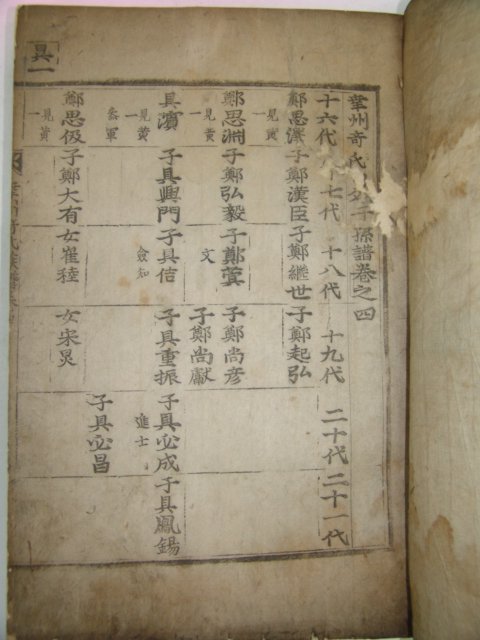 幸州奇氏 子孫譜卷之四
十六代 七代 十八代 十九代 二十代 二十一代
鄭思潔 子鄭漢臣 子鄭繼世 子鄭起弘
見黃一
鄭思淵 子鄭弘毅 子鄭 子鄭尚彦
見黃一 文 子鄭尚獻
具濱 子具興門 子具佶 子具重振 子具宓成 子具鳳錫
見黃一 僉知 進士
參軍 子具宓昌
鄭思伋 子鄭大有 女崔稑 女宋炅
見黃一
具一